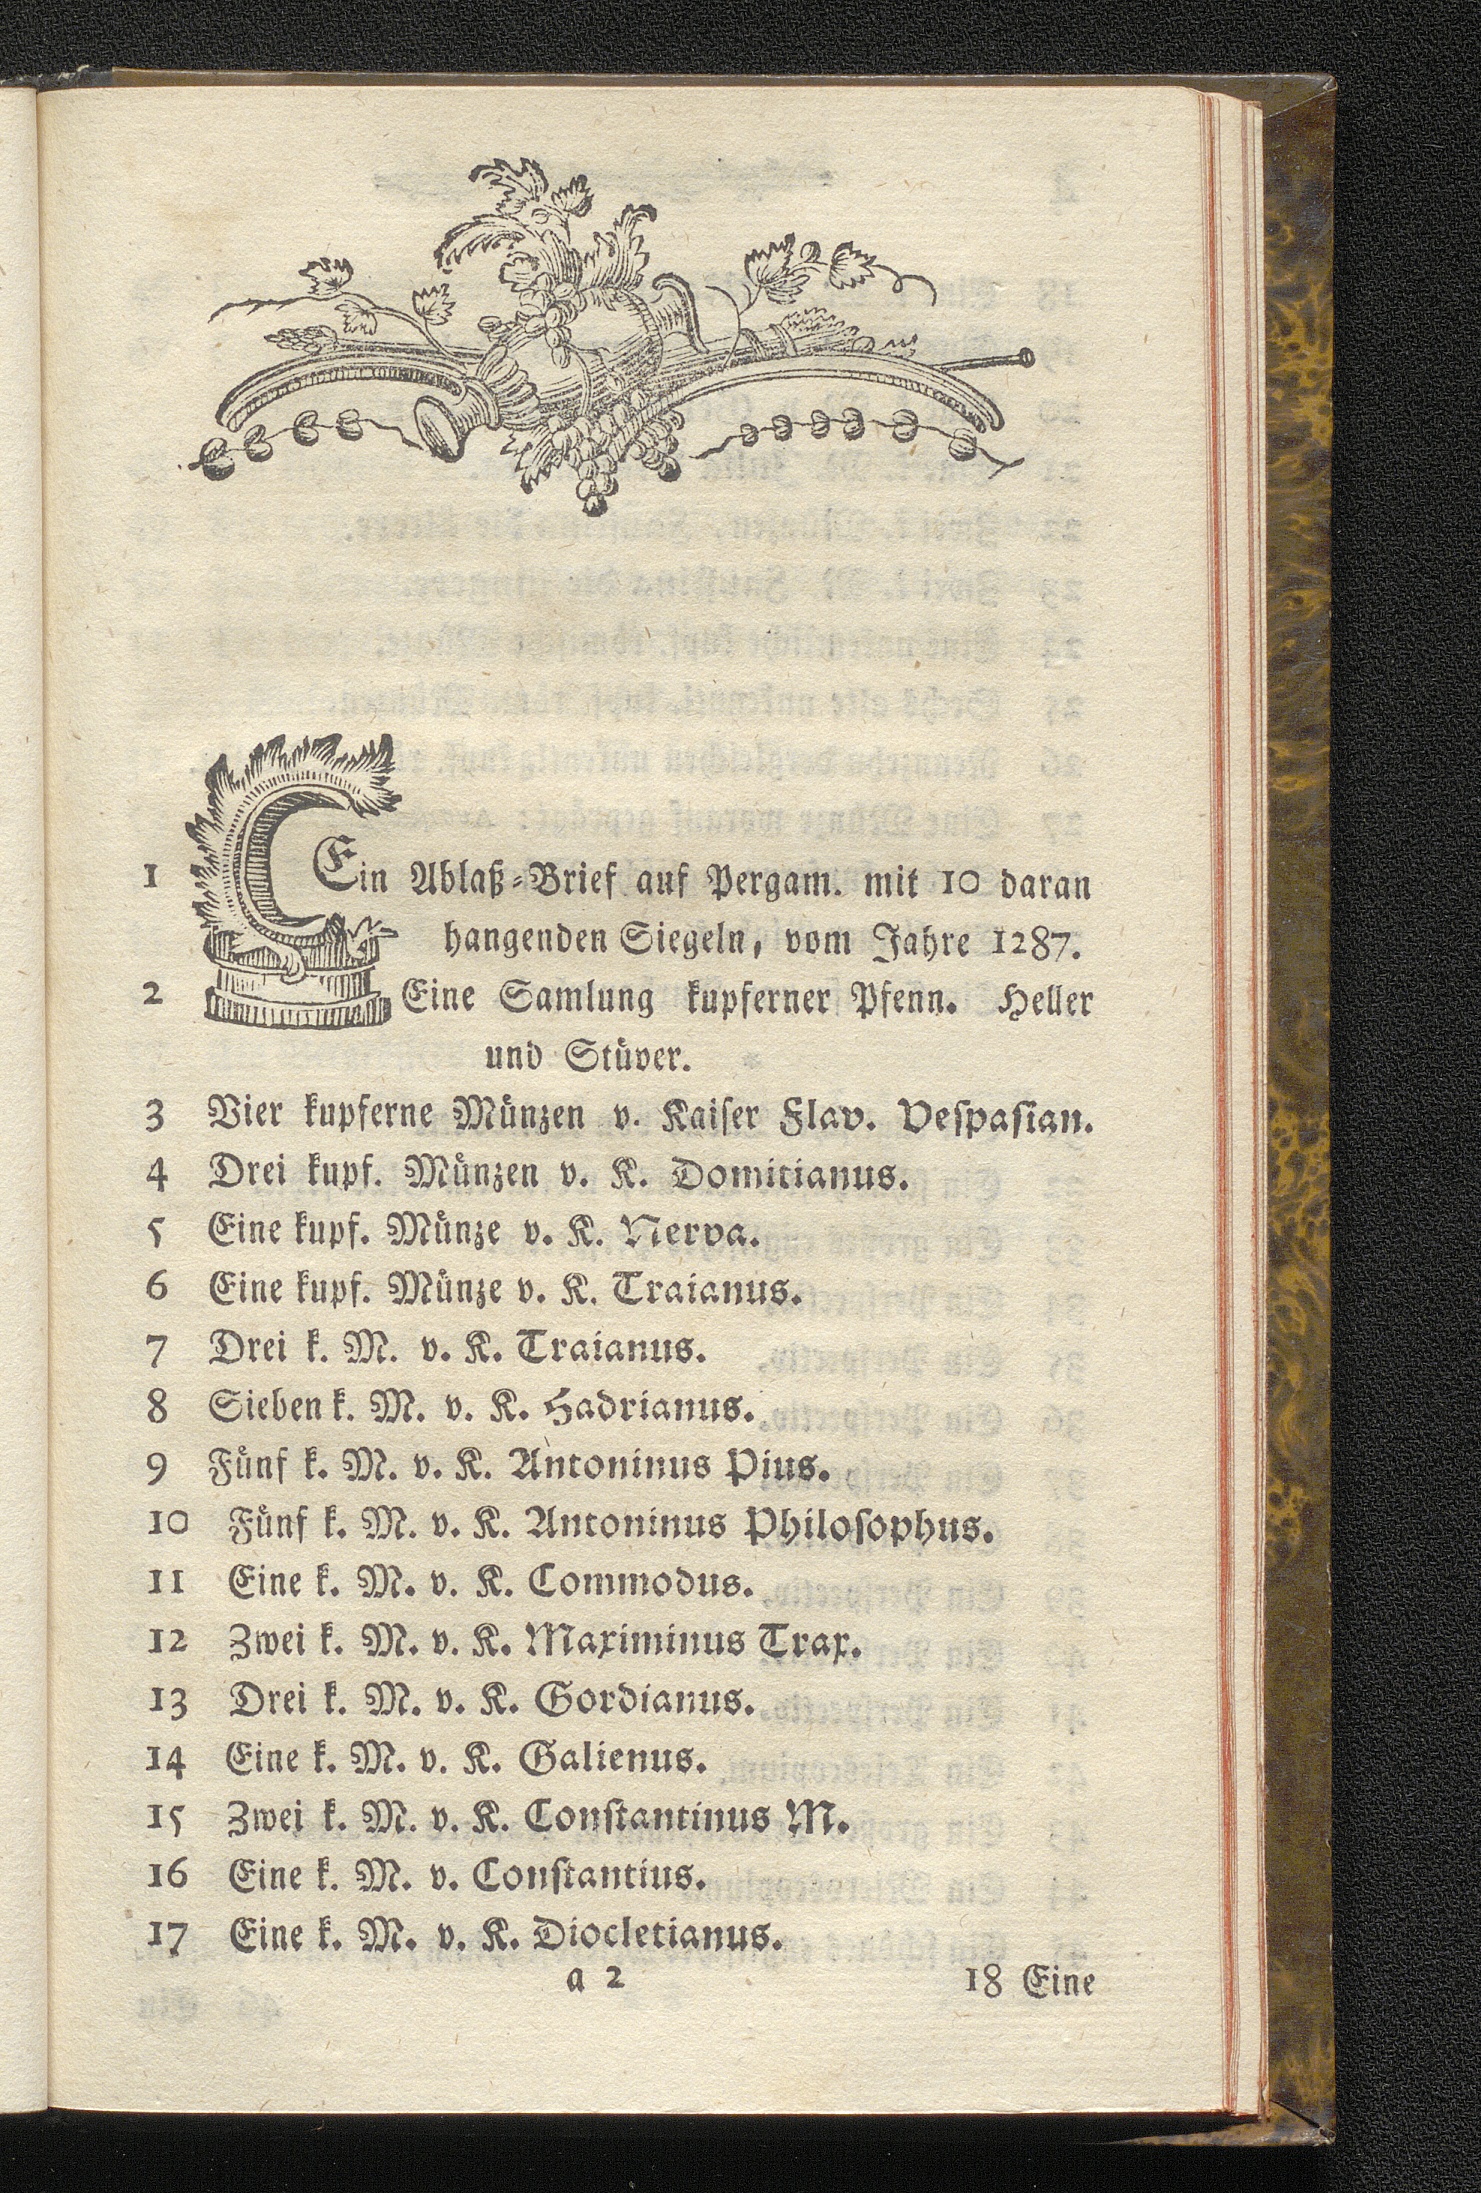 1 Ein Ablaß-Brief auf Pergam. mit 10 daran
hangenden Siegeln, vom Jahre 1287.
2 Eine Samlung kupferner Pfenn. Heller
und Stüver.
3 Vier kupferne Münzen v. Kaiſer Flav. Veſpaſian.
4 Drei kupf. Münzen v. K. Domitianus.
5 Eine kupf. Münze v. K. Nerva.
6 Eine kupf. Münze v. K. Traianus.
7 Drei k. M. v. K. Traianus.
8 Sieben k. M. v. K. Hadrianus.
9 Fünf k. M. v. K. Antoninus Pius.
10 Fünf k. M. v. K. Antoninus Philoſophus.
11 Eine k. M. v. K. Commodus.
12 Zwei k. M. v. K. Maximinus Trax.
13 Drei k. M. v. K. Gordianus.
14 Eine k. M. v. K. Galienus.
15 Zwei k. M. v. K. Conſtantinus M.
16 Eine k. M. v. Conſtantius.
17 Eine k. M. v. K. Diocletianus.
a 2 18 Eine